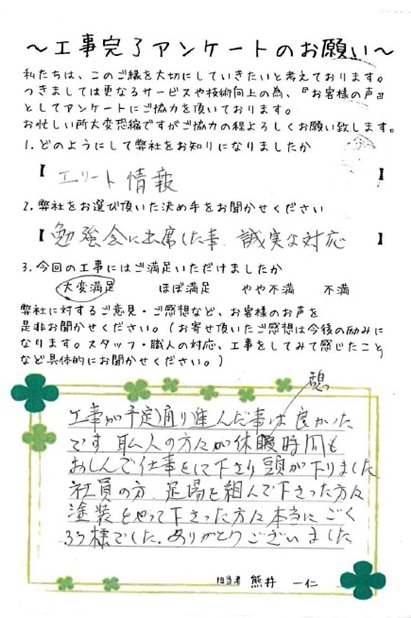 ～工事完了アンケートのお願い～
私たちは、このご縁を大切にしていきたいと考えております。
つきましては更なるサービスや技術向上の為、『お客様の声』
としてアンケートにご協力を頂いております。
お忙しい所大変恐縮ですがご協力の程よろしくお願い致します。
1.どのようにして弊社をお知りになりましたか
【エリート情報】
2.弊社をお選び頂いた決め手をお聞かせください
【勉強会に出席した事、誠実な対応】
3.今回の工事にはご満足いただけましたか
大変満足 ほぼ満足 やや不満 不満
弊社に対するご意見・ご感想など、お客様のお声を
是非お聞かせください。(お寄せ頂いたご感想は今後の励みに
なります。スタッフ・職人の対応、工事をしてみて感じたこと
など具体的にお聞かせください。)
憩
工事が予定通り進んだ事は良かった
です 職人の方々が休暇時間も
おしんで仕事をして下さり頭が下りました
社員の方、足場を組んで下さった方々
塗装をやって下さった方々本当にごく
ろう様でした.ありがとうございました
担当者 熊井 一仁